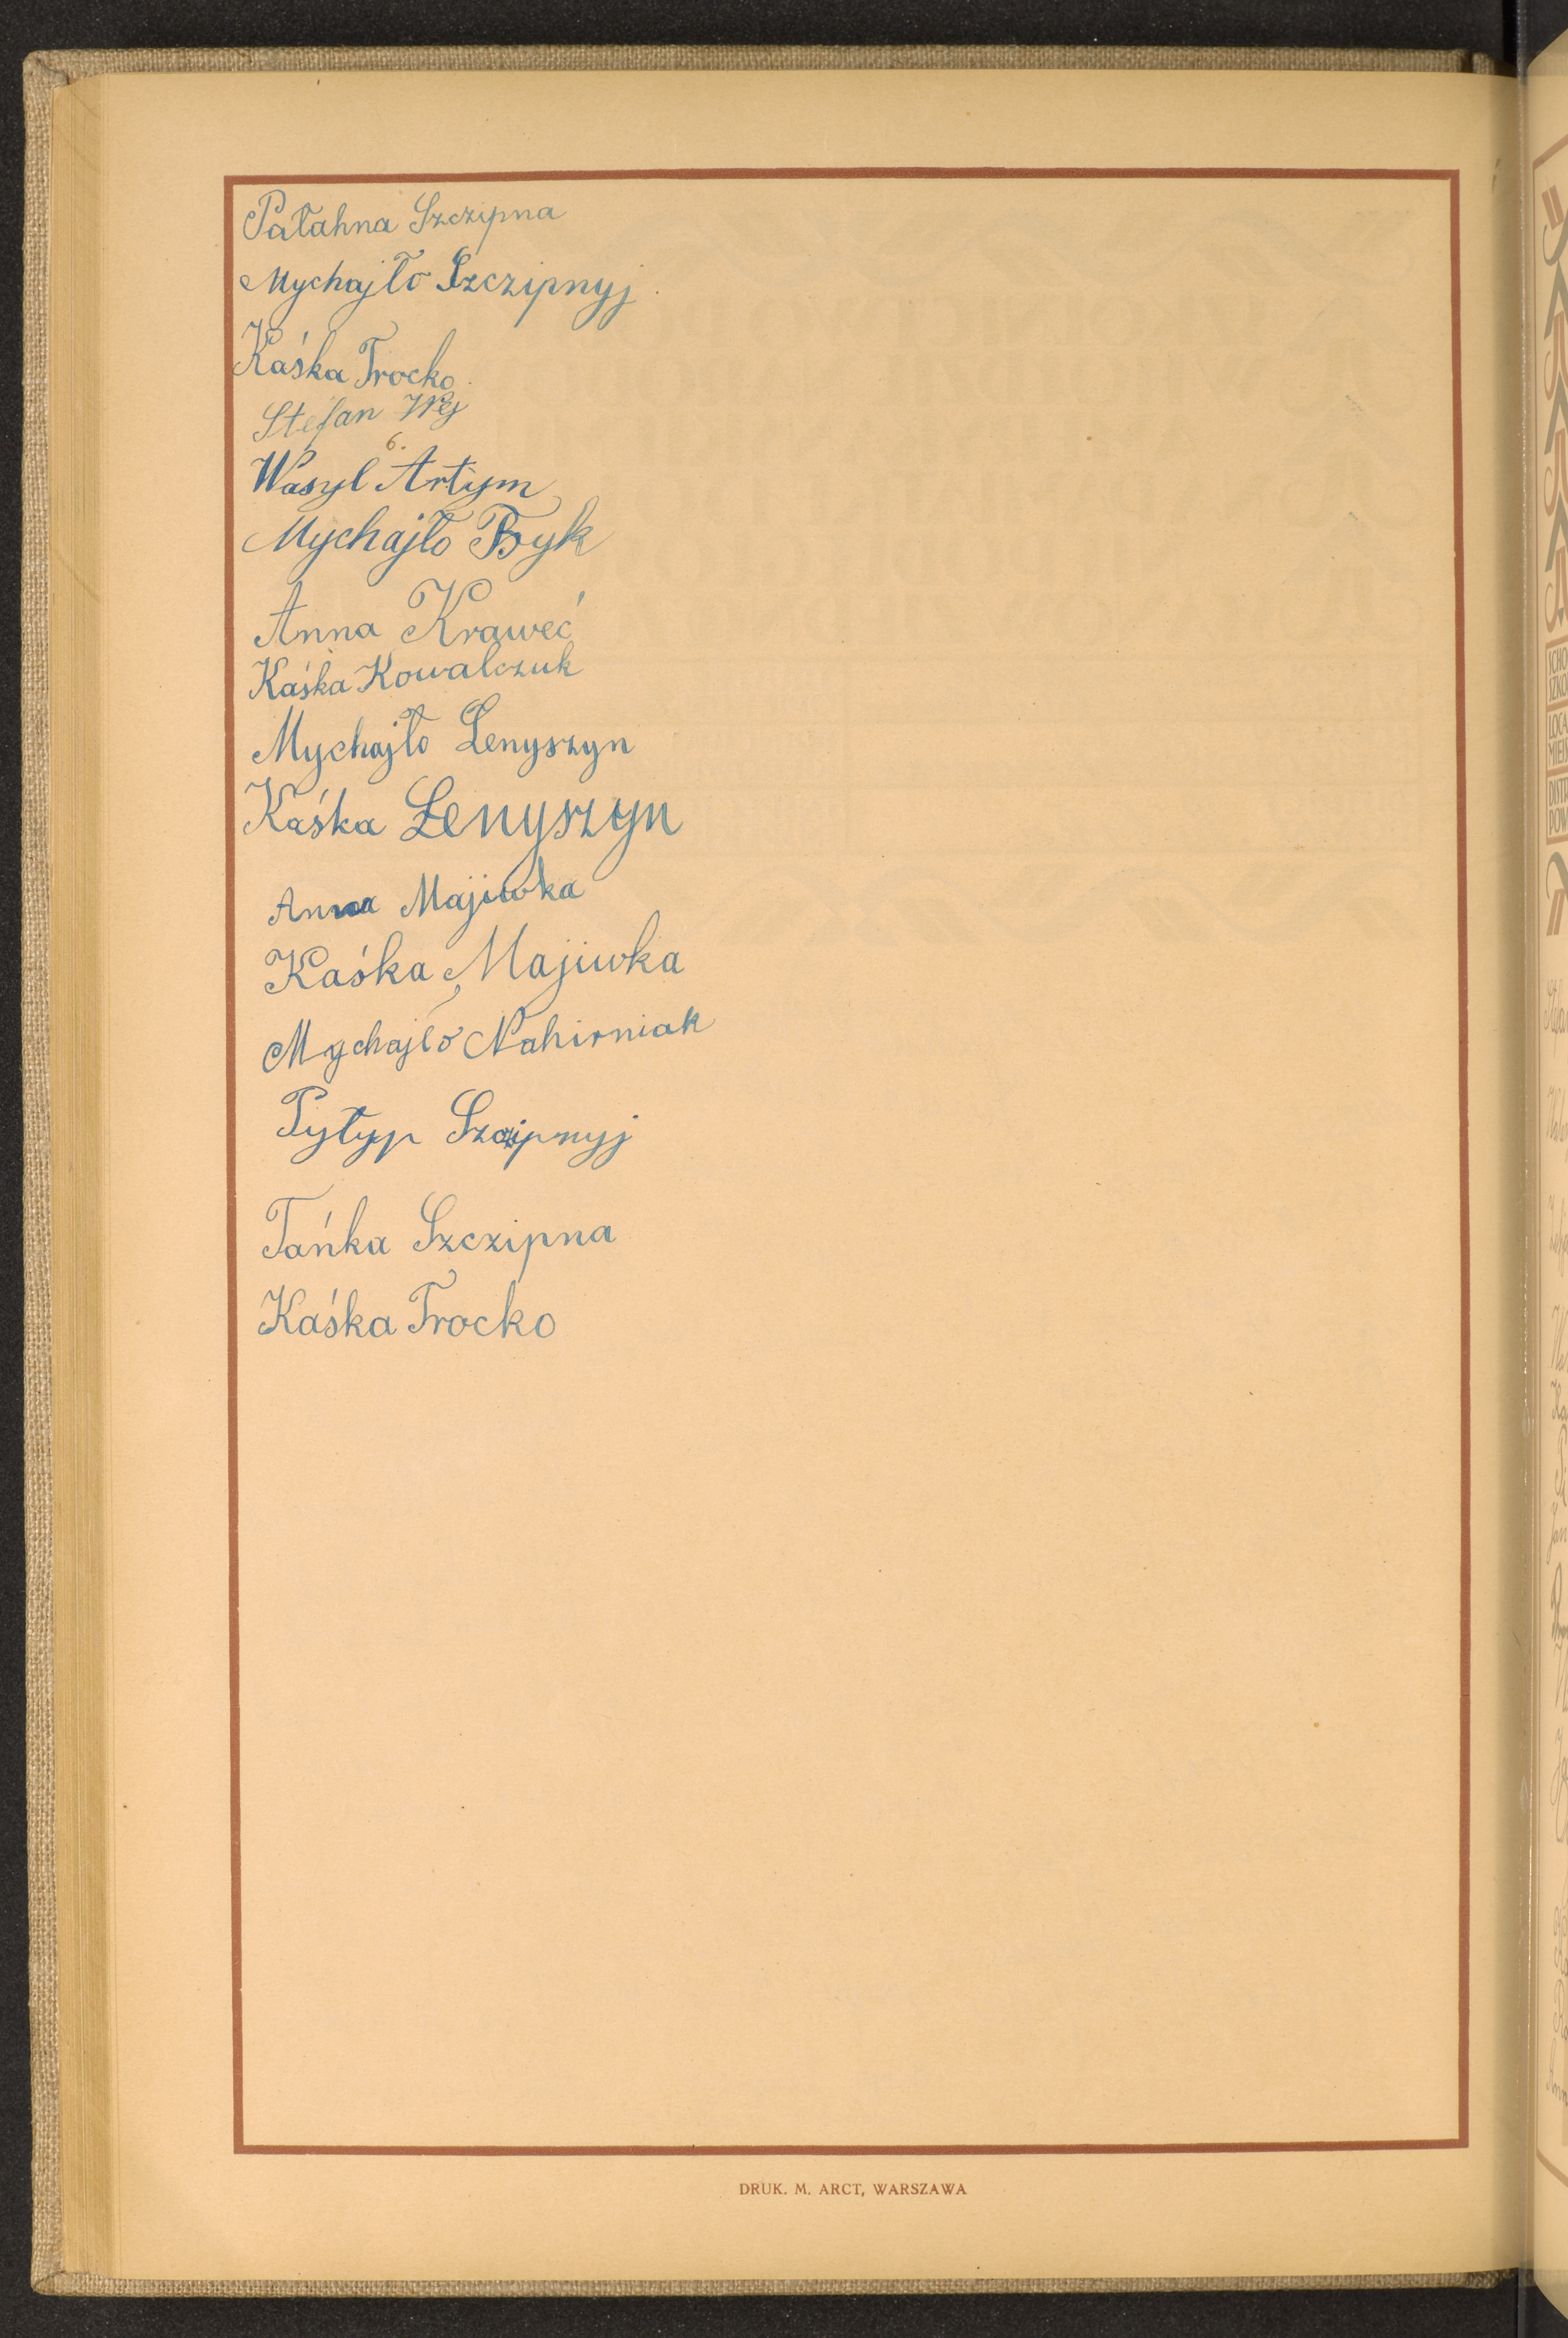 Pałahna Szczipna
Mychajło Szczipnyj
Kaśka Trocko
Stefan Wej
6.
Wasyl Artym
Mychajło Byk
Anna Kraweć
Kaśka Kowalczuk
Mychajło Lenyszyn
Kaśka Lenyszyn
Anna Majiwka
Kaśka Majiwka
Mychajło Nahirniak
Pyłyp Szczipnyj
Tańka Szczipna
Kaśka Trocko
DRUK. M. ARCT, WARSZAWA